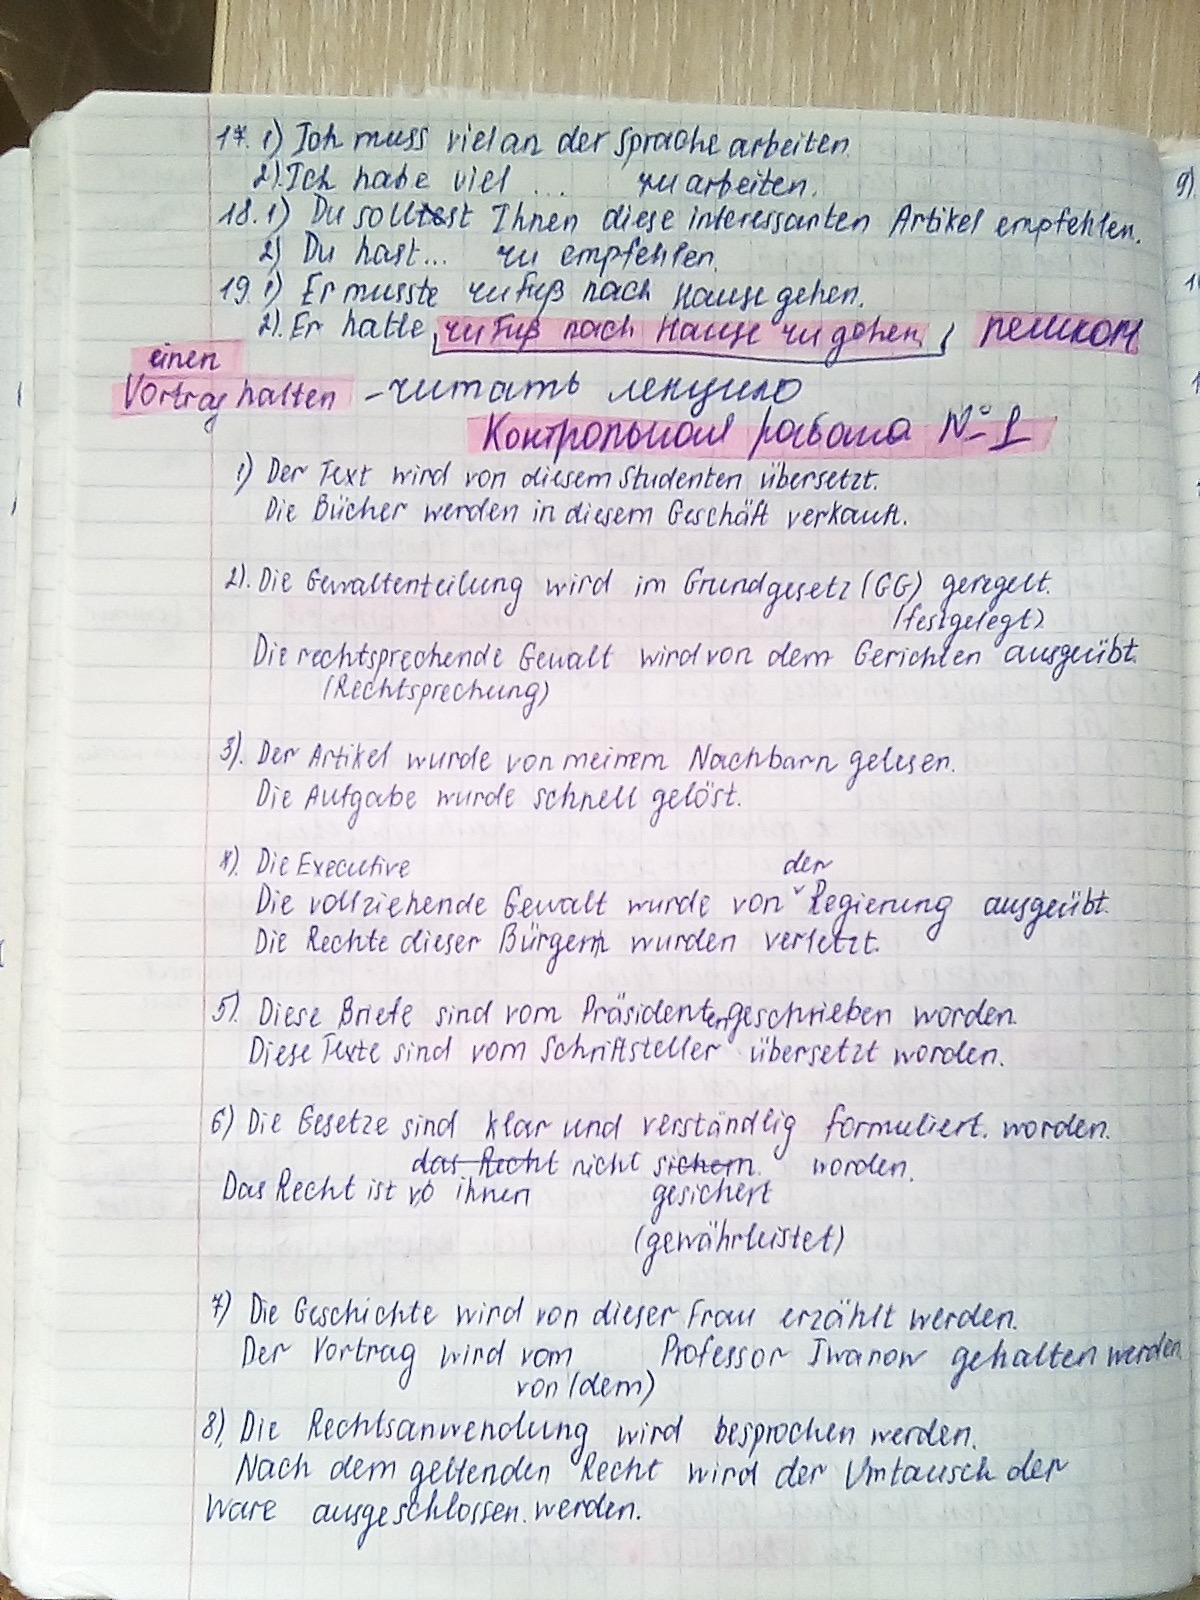 17. 1) Ich muss viel an der Sprache arbeiten.
2). Ich habe viel ... zu arbeiten.
18. 1) Du solltest Ihnen diese interessanten Artikel empfehlen.
2) Du hast... zu empfehlen.
19. 1) Er musste zu Fuß nach Hause gehen.
2). Er hatte zu Fuß nach Hause zu gehen, пешком
einen
Vortrag halten – читать лекцию
Контрольная работа № 1
1) Der Text wird von diesem Studenten übersetzt.
Die Bücher werden in diesem Geschäft verkauft.
2). Die Gewaltenteilung wird im Grundgesetz (GG) geregelt.
(festgelegt)
Die rechtsprechende Gewalt wird von dem Gerichten ausgeübt.
(Rechtsprechung)
3). Der Artikel wurde von meinem Nachbarn gelesen.
Die Aufgabe wurde schnell gelöst.
4). Die Executive
der
Die vollziehende Gewalt wurde von Regierung ausgeübt.
Die Rechte dieser Bürger wurden verletzt.
5). Diese Briefe sind vom Präsidenten geschrieben worden.
Diese Texte sind vom Schriftsteller übersetzt worden.
6) Die Gesetze sind klar und verständlig formuliert. worden.
das Recht nicht sichern. worden.
Das Recht ist vo ihnen gesichert
(gewährleistet)
7) Die Geschichte wird von dieser Frau erzählt werden.
Der Vortrag wird vom Professor Iwanow gehalten werden
von (dem)
8). Die Rechtsanwendung wird besprochen werden.
Nach dem geltenden Recht wird der Umtausch der
Ware ausgeschlossen. werden.
9)